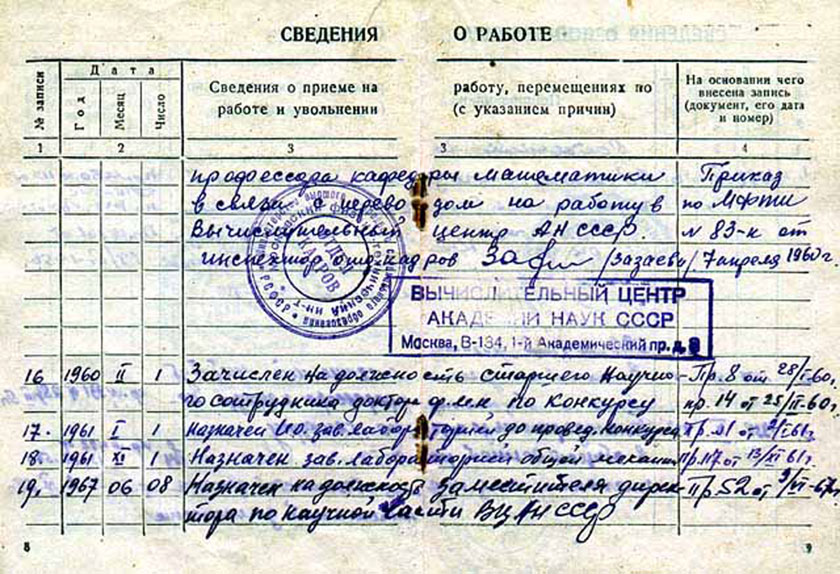 СВЕДЕНИЯ О РАБОТЕ
№ записи
Дата
Год
Месяц
Число
Сведения о приеме на работу, перемещениях по
работе и увольнении (с указанием причин)
На основании чего
внесена запись
(документ, его дата
и номер)
1 2 3 3 4
профессора кафедры математики Приказ
в связи с переводом на работу в по МФТИ
Вычислительный центр АН СССР. N 83-к от
инспектор отд. кадров /Зазаева/ 7 апреля 1960 г.
ОТДЕЛ
КАДРОВ
ВЫЧИСЛИТЕЛЬНЫЙ ЦЕНТР
АКАДЕМИИ НАУК СССР
Москва, В-134, 1-й Академический пр. д.
16 1960 II 1 Зачислен на должность старшего научно- Пр. 8 от 28/I-60,
го сотрудника доктор ф.м.н. по конкурсу пр. 14 от 25/II-60,
17. 1961 I 1 Назначен И.о. зав. лабораторией до провед. конкурса Пр. 1 от 2/I 61,
18. 1961 XI 1 Назначен зав. лабораторией общей механики Пр. 17. от 61,
19, 1967 06 08 Назначен на должность заместителя дирек- Пр. 52 от 9/VI-67
тора по научной части ВЦ АН СССР
8 9